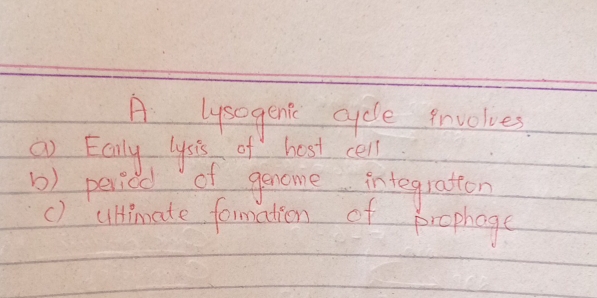 A lysogenic cycle involves
a) Early lysis of host cell
b) period of genome integration
c) ultimate formation of prophage